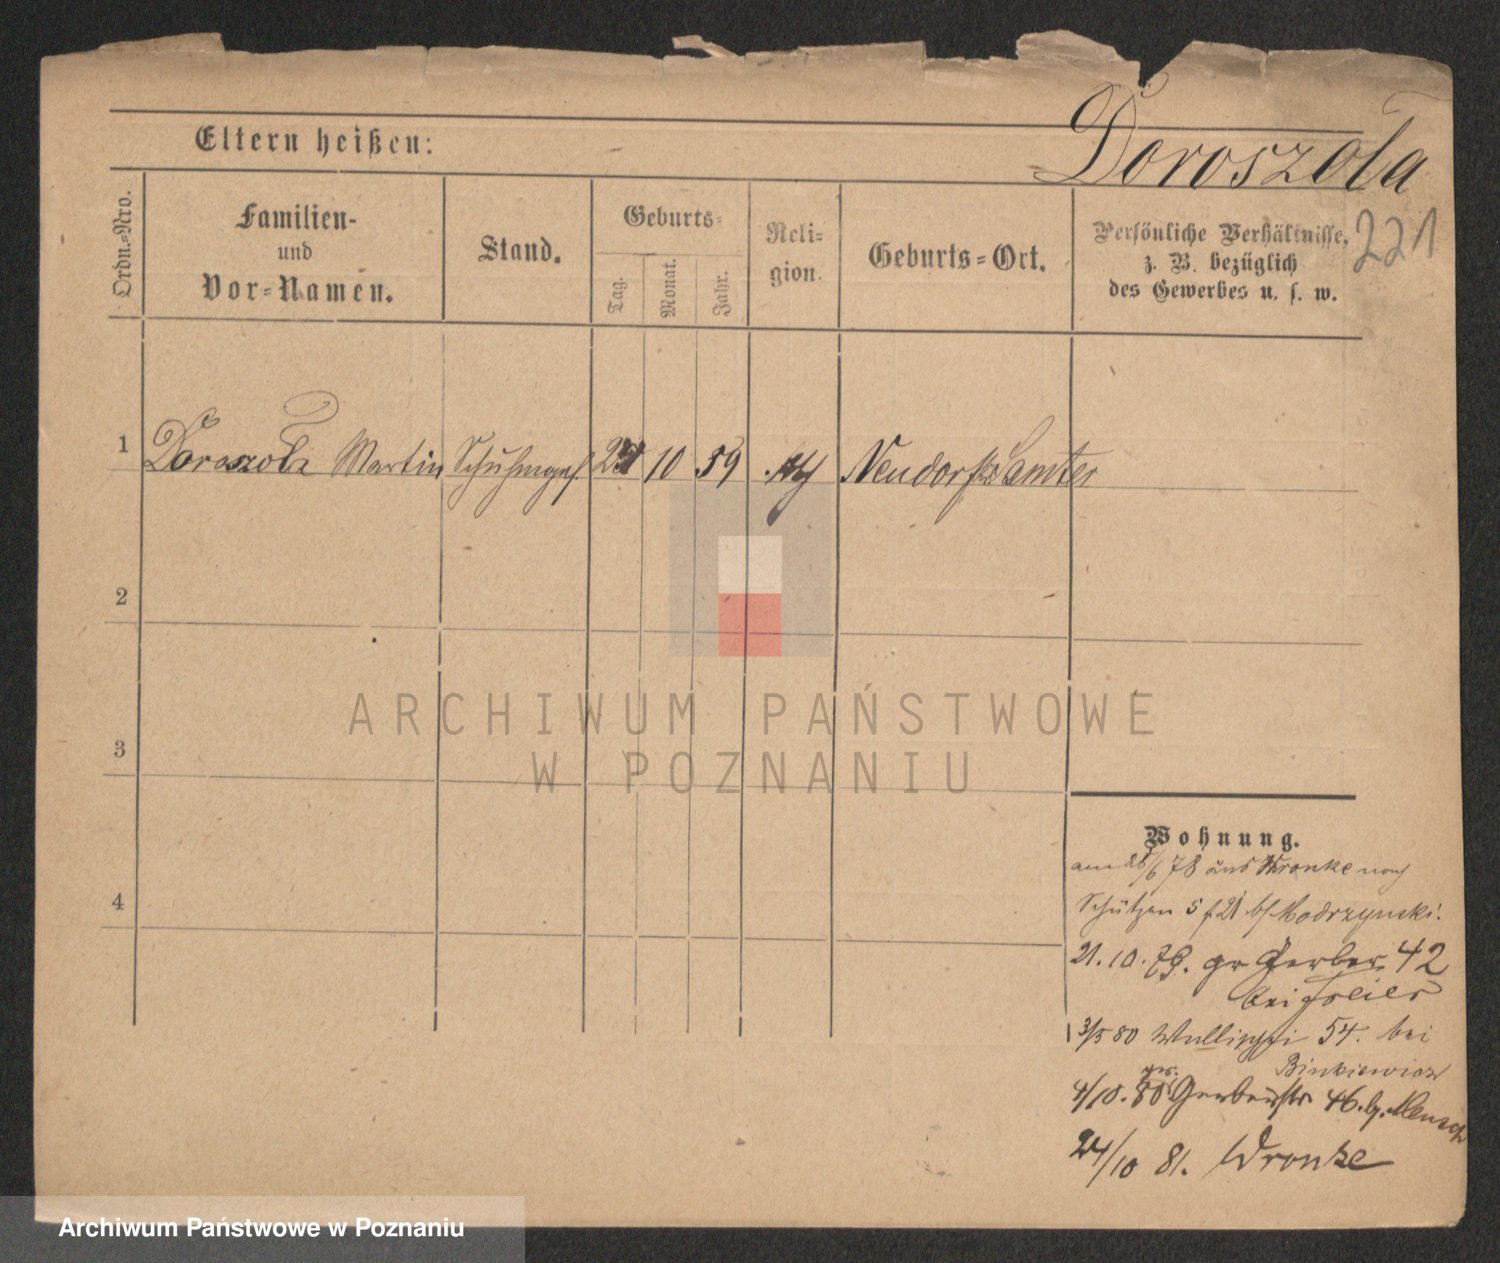 Doroszoła
Eltern heißen:
221
Ordn.-Nro.
Familien-
und
Vor-Namen.
Stand.
Geburts-
Tag.
Monat.
Jahr.
Reli-
gion.
Geburts-Ort.
Persönliche Verhältnisse,
z. B. bezüglich
des Gewerbes u. s. w.
1 Doroszoła Martin 10 59 Neudorf Samter
2
3
4
ARCHIWUM PAŃSTWOWE
W POZNANIU
Wohnung.
am 28/6 78 aus Wronke nach
Schützen 5 b/ Modrzynski.
21.10.79. gr Gerber 42
bei
3/5 80 Wallischei 54. bei
Binkiewicz
4/10. 80 gr. Gerberstr 46. b.
24/10 81. Wronke
Archiwum Państwowe w Poznaniu